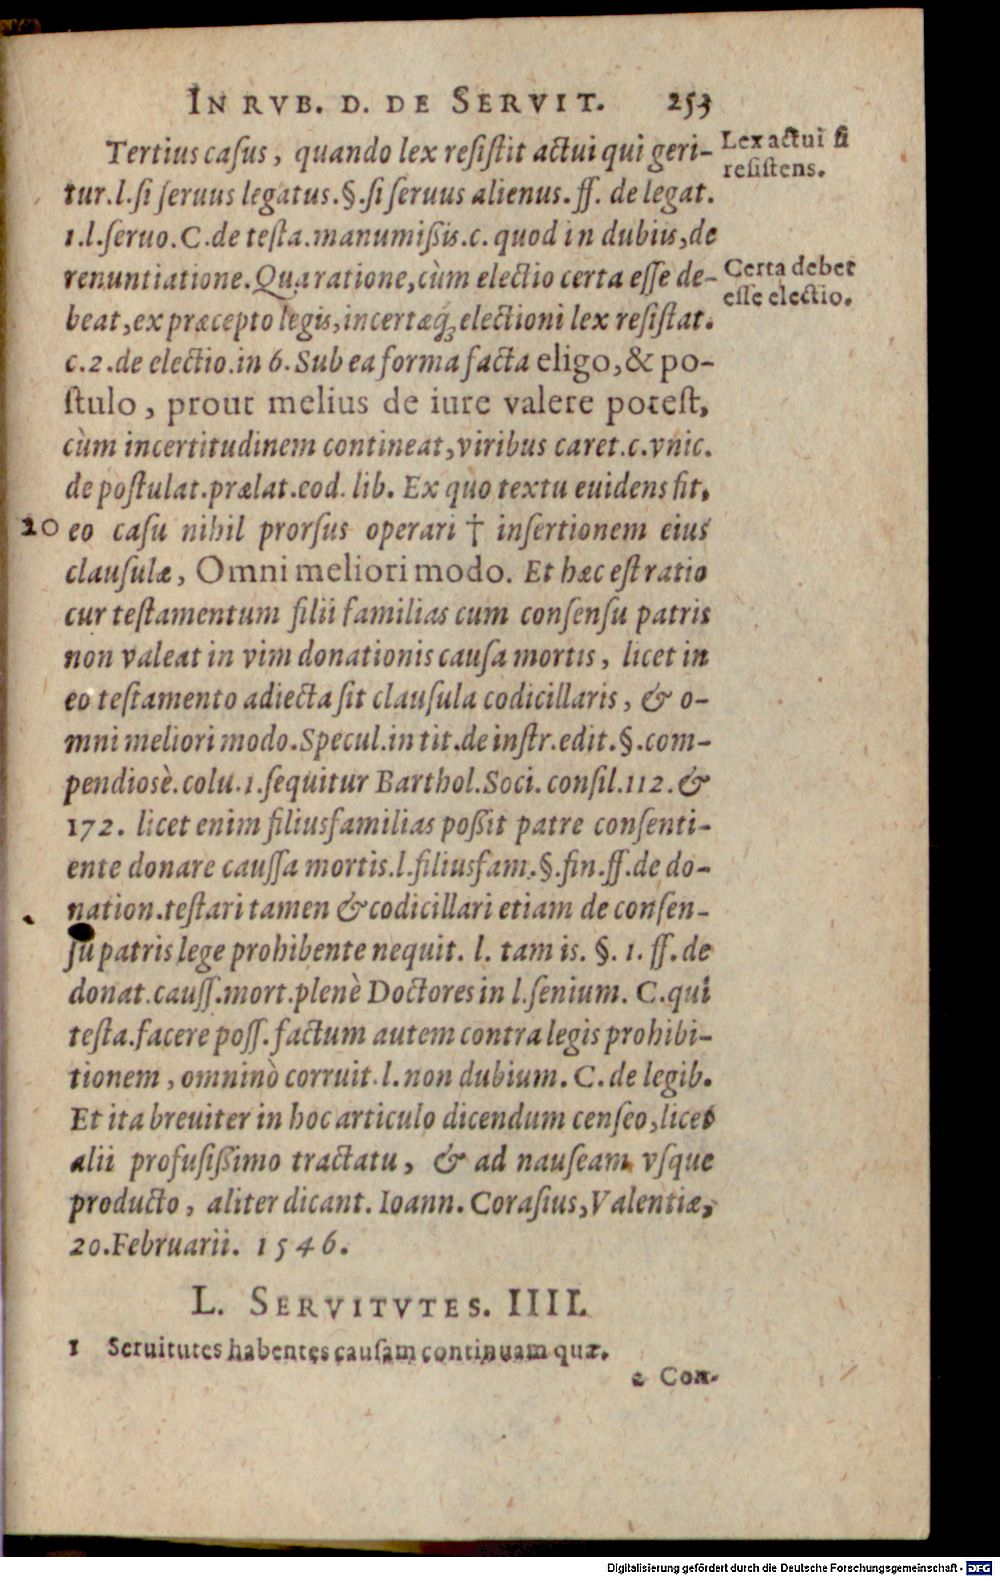 IN RVB. D. DE SERVIT. 253
Tertius casus, quando lex resistit actui qui geri-
Lex actui si
resistens.
tur.l.si seruus legatus.§.si seruus alienus.ff. de legat.
1.l.seruo.C.de testa.manumißis.c. quod in dubiis,de
renuntiatione.Qua ratione,cùm electio certa esse de-
Certa debet
esse electio.
beat,ex præcepto legis,incertæq́; electioni lex resistat.
c.2.de electio.in 6. Sub ea forma facta eligo,& po-
stulo, prout melius de iure valere potest,
cùm incertitudinem contineat,viribus caret.c.vnic.
de postulat.prælat.eod. lib. Ex quo textu euidens sit,
20 eo casu nihil prorsus operari † insertionem eius
clausulæ, Omni meliori modo. Et hæc est ratio
cur testamentum filii familias cum consensu patris
non valeat in vim donationis causa mortis, licet in
eo testamento adiecta sit clausula codicillaris, & o-
mni meliori modo.Specul.in tit.de instr.edit.§.com-
pendiosè.colu.1.sequitur Barthol.Soci.consil.112.&
172. licet enim filiusfamilias poßit patre consenti-
ente donare caussa mortis.l.filiusfam.§.fin.ff.de do-
nation.testari tamen & codicillari etiam de consen-
su patris lege prohibente nequit. l. tam is. §. 1. ff. de
donat.causs.mort.plenè Doctores in l.senium. C.qui
testa.facere poss.factum autem contra legis prohibi-
tionem, omninò corruit.l.non dubium. C. de legib.
Et ita breuiter in hoc articulo dicendum censeo,licet
alii profusißimo tractatu, & ad nauseam vsque
producto, aliter dicant. Ioann. Corasius,Valentiæ,
20.Februarii. 1546.
L. SERVITVTES. IIII.
1 Seruitutes habentes causam continuam quæ.
2 Con-
Digitalisierung gefördert durch die Deutsche Forschungsgemeinschaft - DFG